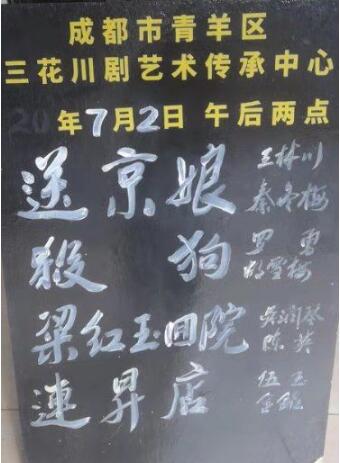 成都市青羊区
三花川剧艺术传承中心
20 年7月2日 午后两点
送京娘 王林川
秦冬梅
殺狗 罗勇
胡雪梅
梁红玉囬院 吴润琴
陈英
連昇店 伍玉